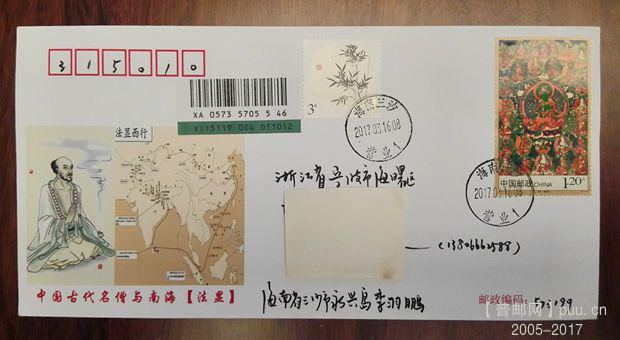 315010
3元
XA 0573 5705 5 46
XY15119 004 011012
2017.03.16.08
营业1
中国邮政 CHINA 1.20元
2017.03.16.08
营业1
法显西行
浙江省宁波市海曙区
(13806662588)
中国古代名僧与南海【法显】
海南省三沙市永兴岛 李羽鹏
邮政编码: 573199
【普邮网】puu.cn
2005-2017